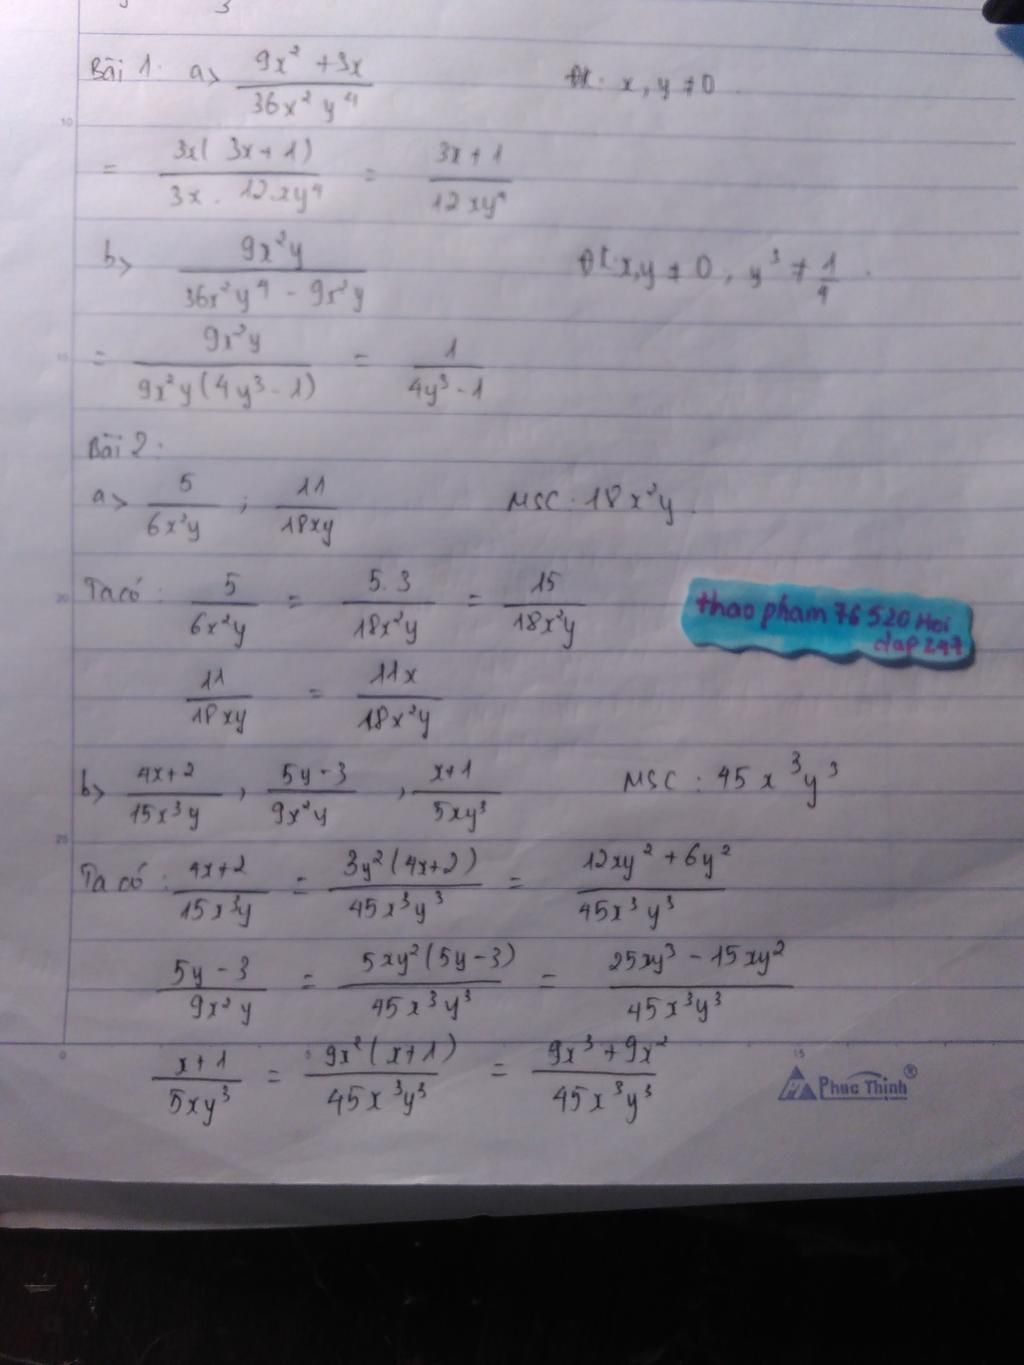 3
Bài 1: a> \frac{9x² + 3x}{36x² y⁴} Đk: x, y ≠ 0.
= \frac{3x(3x+1)}{3x . 12xy⁴} = \frac{3x+1}{12xy⁴}
b> \frac{9x²y}{36x²y⁴ - 9x²y} Đk: x,y ≠ 0, y³ ≠ \frac{1}{4}.
= \frac{9x²y}{9x²y(4y³-1)} = \frac{1}{4y³-1}
Bài 2:
a> \frac{5}{6x²y} ; \frac{11}{18xy} MSC: 18x²y.
Ta có: \frac{5}{6x²y} = \frac{5.3}{18x²y} = \frac{15}{18x²y}
thao pham 76 520 Hoi
dap 247
\frac{11}{18xy} = \frac{11x}{18x²y}
b> \frac{4x+2}{15x³y}, \frac{5y-3}{9x²y}, \frac{x+1}{5xy³} MSC: 45x³y³
Ta có: \frac{4x+2}{15x³y} = \frac{3y²(4x+2)}{45x³y³} = \frac{12xy²+6y²}{45x³y³}
\frac{5y-3}{9x²y} = \frac{5xy²(5y-3)}{45x³y³} = \frac{25xy³-15xy²}{45x³y³}
\frac{x+1}{5xy³} = \frac{9x²(x+1)}{45x³y³} = \frac{9x³+9x²}{45x³y³}
Phuc Thinh®
10
15
20
25
0 5 15